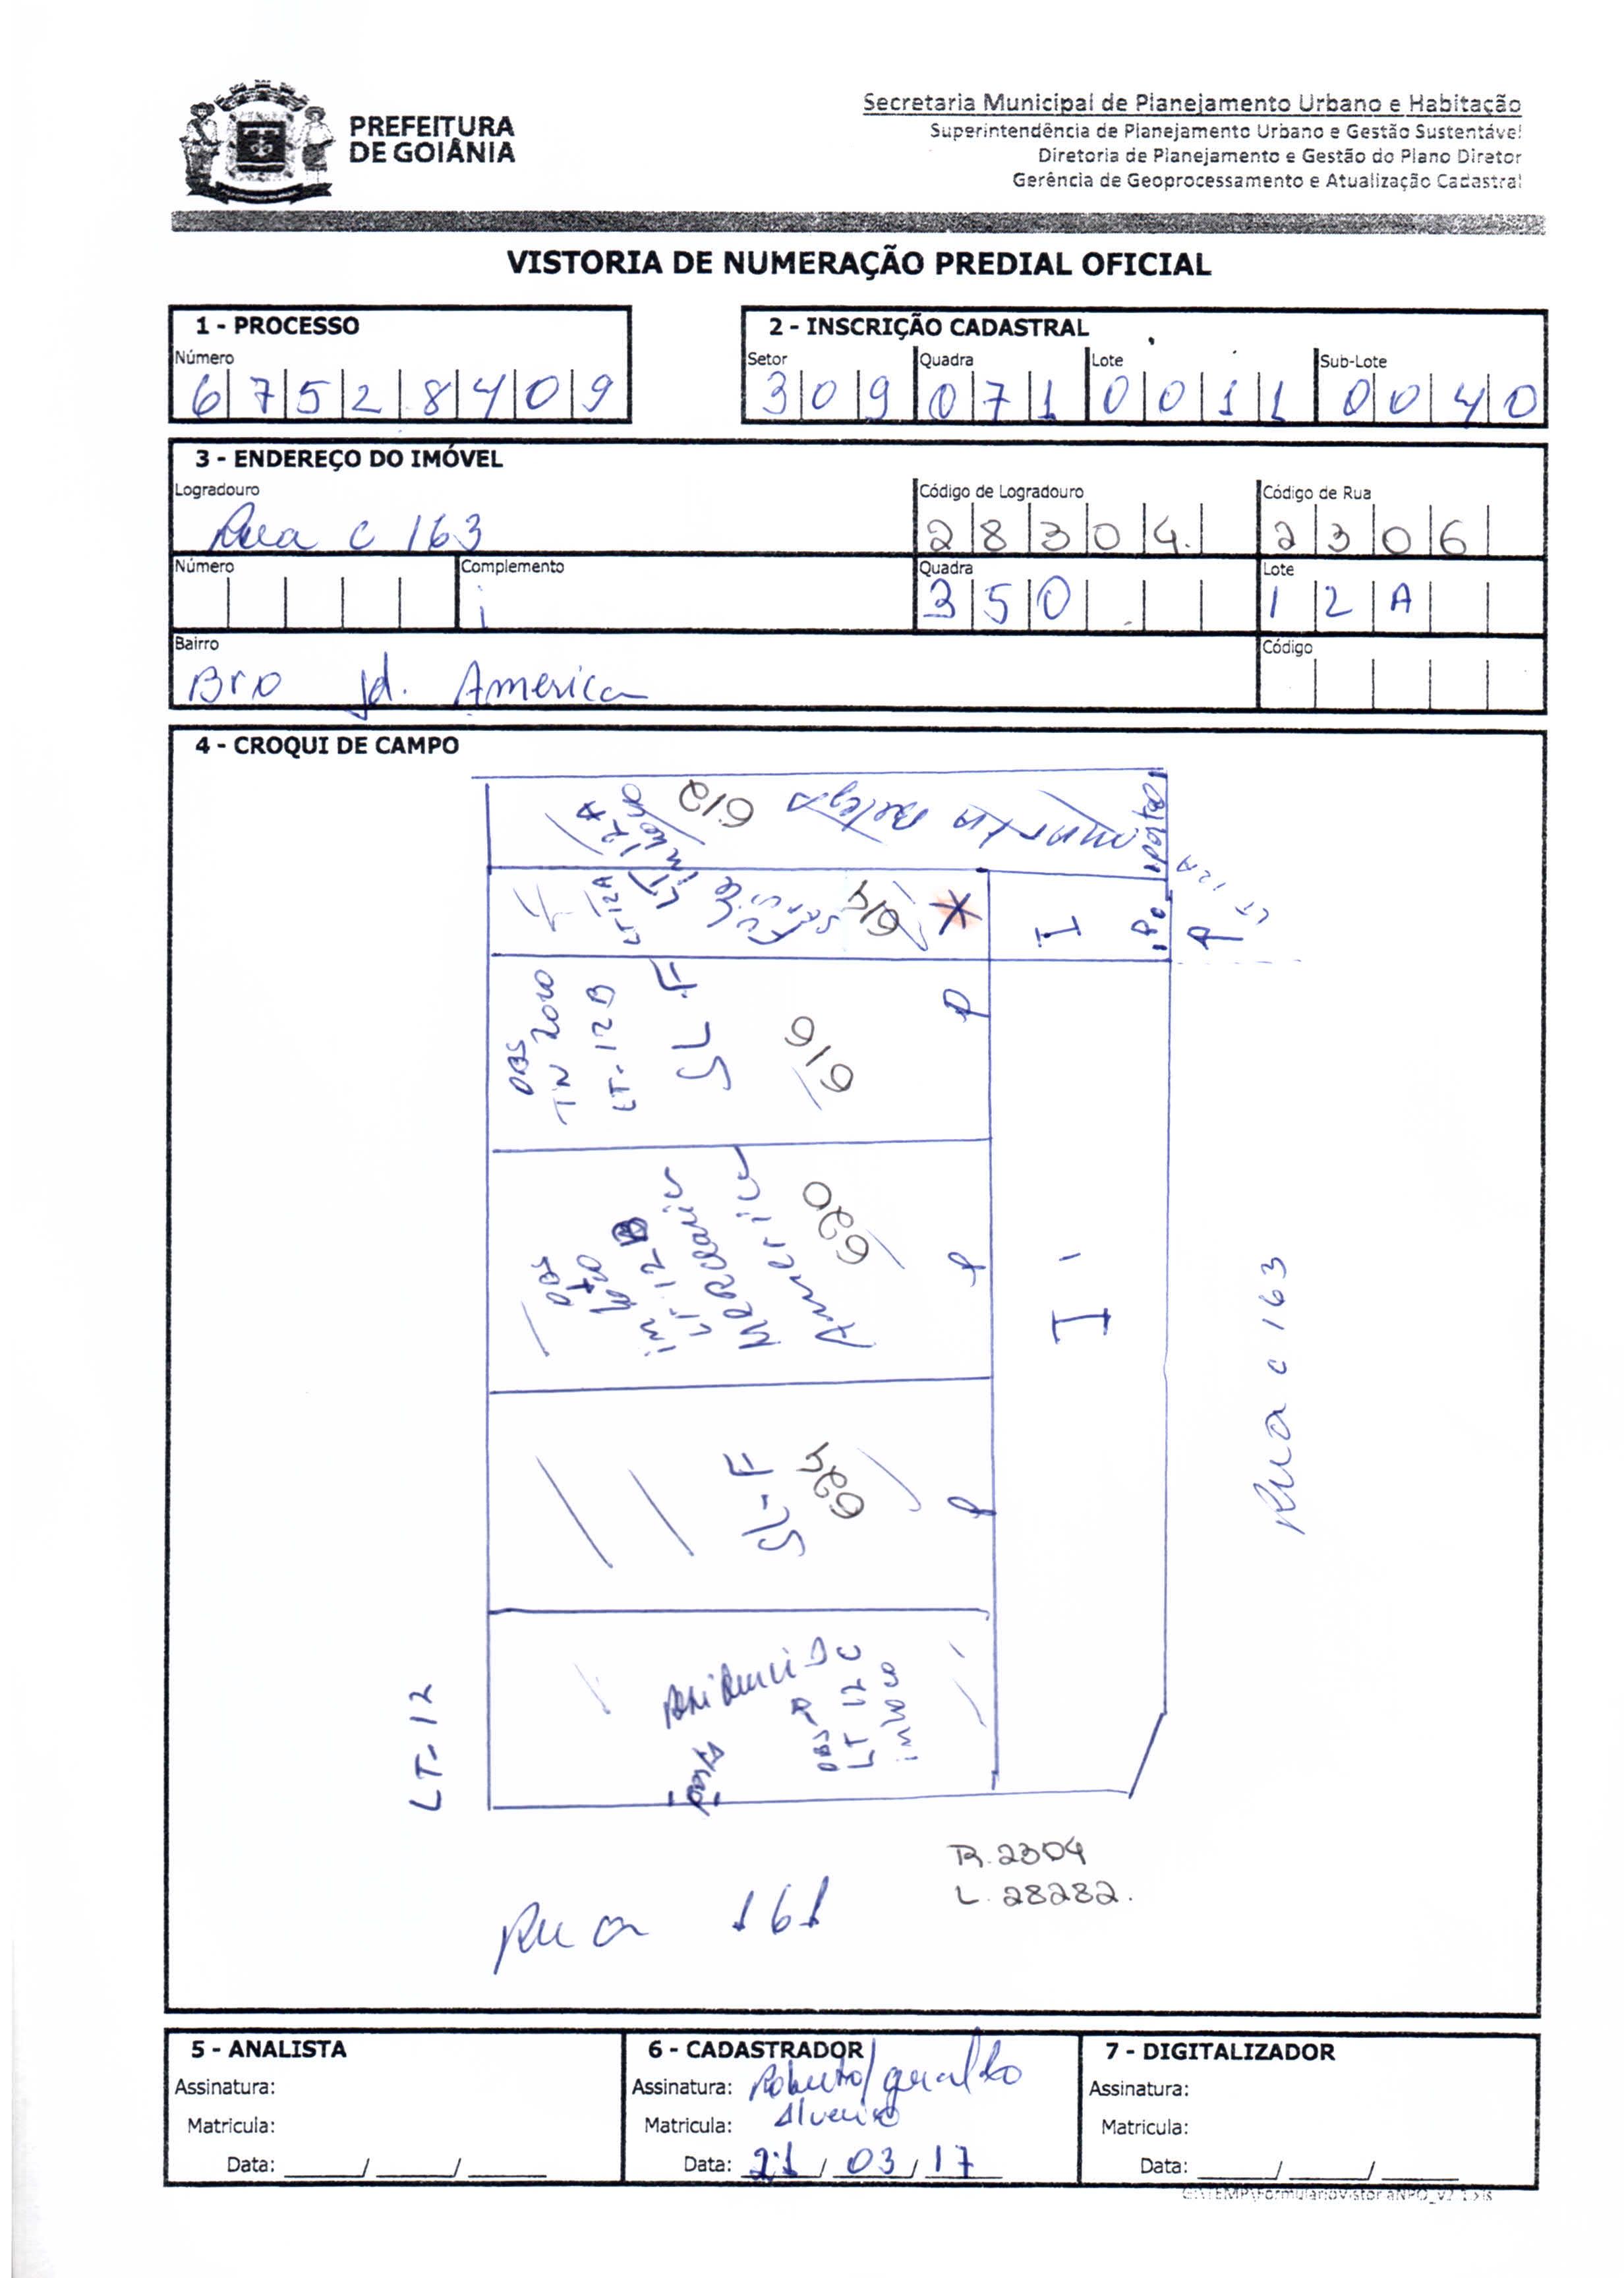 PREFEITURA
DE GOIÂNIA
Secretaria Municipal de Planejamento Urbano e Habitação
Superintendência de Planejamento Urbano e Gestão Sustentável
Diretoria de Planejamento e Gestão do Plano Diretor
Gerência de Geoprocessamento e Atualização Cadastral
VISTORIA DE NUMERAÇÃO PREDIAL OFICIAL
1 - PROCESSO
Número
67528409
2 - INSCRIÇÃO CADASTRAL
Setor Quadra Lote Sub-Lote
309 071 0011 0040
3 - ENDEREÇO DO IMÓVEL
Logradouro Código de Logradouro Código de Rua
Rua c 163 28304. 2306
Número Complemento Quadra Lote
350 12A
Bairro Código
Bro Jd. America
4 - CROQUI DE CAMPO
LT 12A
612
porta
LT 12A
LT 12A
614
I
P
OBS
TN 2010
LT. 12 B
SL F
616
P
OBS
LT. 12 B
Mercearia
America
620
P
I
Rua c 163
SL-F
624
P
Residencia
OBS
LT 12 C
porta
LT. 12
R. 2304
L. 28282.
Rua 161
5 - ANALISTA
Assinatura:
Matricula:
Data: ___/___/___
6 - CADASTRADOR
Assinatura: Roberto/geraldo
Matricula:
Data: 21/03/17
7 - DIGITALIZADOR
Assinatura:
Matricula:
Data: ___/___/___